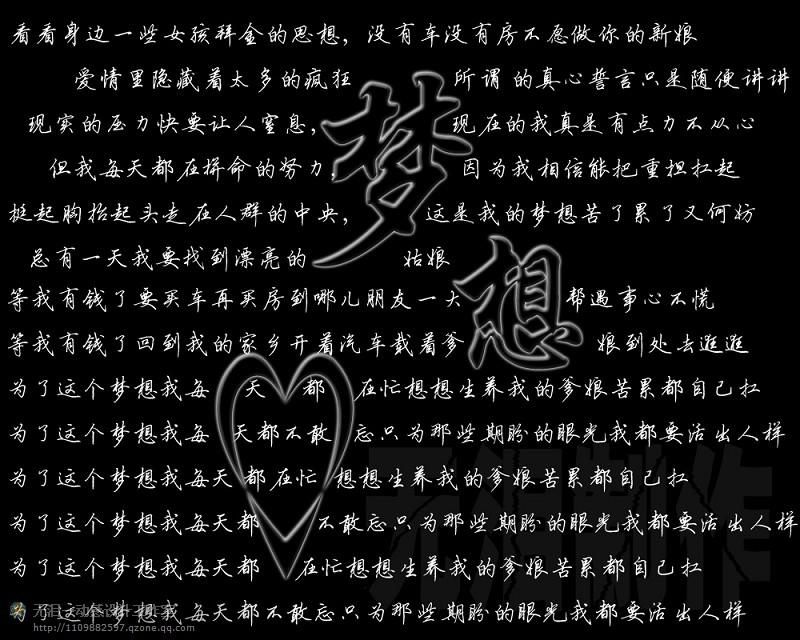 看看身边一些女孩拜金的思想，没有车没有房不愿做你的新娘
爱情里隐藏着太多的疯狂 所谓的真心誓言只是随便讲讲
现实的压力快要让人窒息， 现在的我真是有点力不从心
但我每天都在拼命的努力， 因为我相信能把重担扛起
挺起胸抬起头走在人群的中央， 这是我的梦想苦了累了又何妨
总有一天我要找到漂亮的 姑娘
等我有钱了要买车再买房到哪儿朋友一大 帮遇事心不慌
等我有钱了回到我的家乡开着汽车载着爹 娘到处去逛逛
梦想
为了这个梦想我每 天 都 在忙想想生养我的爹娘苦累都自己扛
为了这个梦想我每 天都不敢 忘只为那些期盼的眼光我都要活出人样
为了这个梦想我每天 都在忙 想想生养我的爹娘苦累都自己扛
为了这个梦想我每天都 不敢忘只为那些期盼的眼光我都要活出人样
为了这个梦想我每天都 在忙想想生养我的爹娘苦累都自己扛
为了这个梦想我每天都不敢忘只为那些期盼的眼光我都要活出人样
无泪制作
http://1109882597.qzone.qq.com